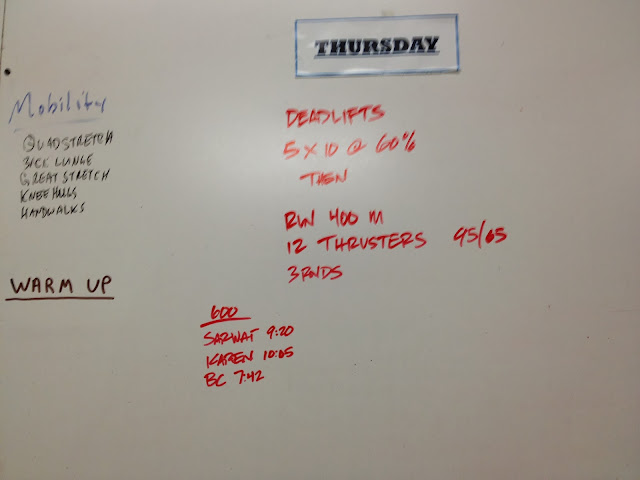 THURSDAY
Mobility
QUADSTRETCH
BACK LUNGE
GREAT STRETCH
KNEE HUGS
HANDWALKS
WARM UP
DEADLIFTS
5 X 10 @ 60%
THEN
RUN 400 M
12 THRUSTERS 95/65
3 RNDS
600
SARWAT 9:20
KAREN 10:05
BC 7:42